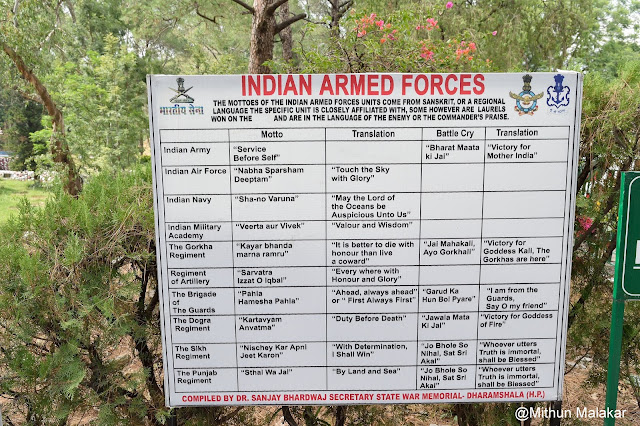 INDIAN ARMED FORCES
भारतीय सेना
THE MOTTOES OF THE INDIAN ARMED FORCES UNITS COME FROM SANSKRIT, OR A REGIONAL
LANGUAGE THE SPECIFIC UNIT IS CLOSELY AFFILIATED WITH, SOME HOWEVER ARE LAURELS
WON ON THE AND ARE IN THE LANGUAGE OF THE ENEMY OR THE COMMANDER'S PRAISE.
Motto Translation Battle Cry Translation
Indian Army "Service "Bharat Maata "Victory for
Before Self" ki Jai" Mother India"
Indian Air Force "Nabha Sparsham "Touch the Sky
Deeptam" with Glory"
Indian Navy "Sha-no Varuna" "May the Lord of
the Oceans be
Auspicious Unto Us"
Indian Military "Veerta aur Vivek" "Valour and Wisdom"
Academy
The Gorkha "Kayar bhanda "It is better to die with "Jai Mahakali, "Victory for
Regiment marna ramru" honour than live Ayo Gorkhali" Goddess Kali, The
a coward" Gorkhas are here"
Regiment "Sarvatra "Every where with
of Artillery Izzat O Iqbal" Honour and Glory"
The Brigade "Pahla "Ahead, always ahead" "Garud Ka "I am from the
of Hamesha Pahla" or " First Always First" Hun Bol Pyare" Guards,
The Guards Say O my friend"
The Dogra "Kartavyam "Duty Before Death" "Jawala Mata "Victory for Goddess
Regiment Anvatma" Ki Jai" of Fire"
The Sikh "Nischey Kar Apni "With Determination, "Jo Bhole So "Whoever utters
Regiment Jeet Karon" I Shall Win" Nihal, Sat Sri Truth is immortal,
Akal" shall be Blessed"
The Punjab "Sthal Wa Jal" "By Land and Sea" "Jo Bhole So "Whoever utters
Regiment Nihal, Sat Sri Truth is immortal,
Akal" shall be Blessed"
COMPILED BY DR. SANJAY BHARDWAJ SECRETARY STATE WAR MEMORIAL- DHARAMSHALA (H.P.)
@Mithun Malakar